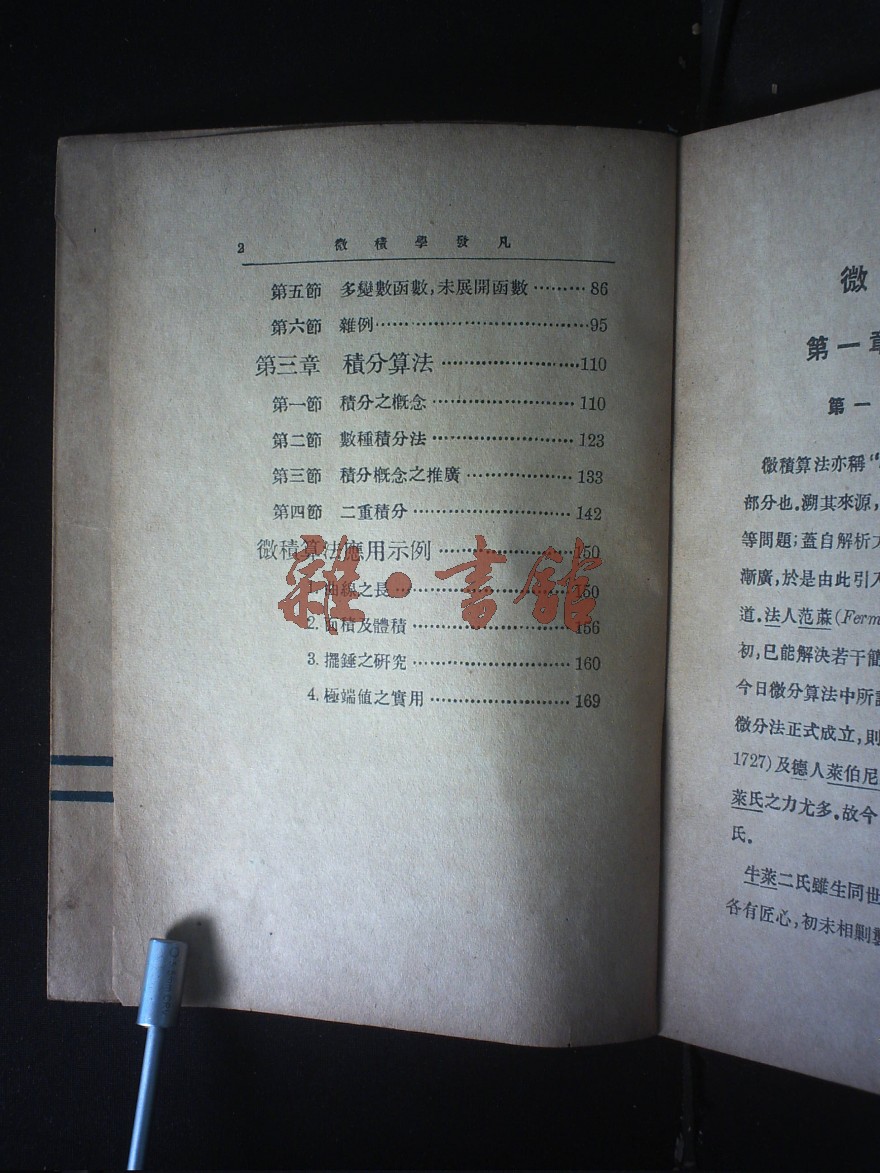 2 微積學發凡
第五節 多變數函數,未展開函數………86
第六節 雜例………95
第三章 積分算法………110
第一節 積分之概念………110
第二節 數種積分法………123
第三節 積分概念之推廣………133
第四節 二重積分………142
微積算法應用示例………150
1. 曲線之長………150
2. 面積及體積………156
3. 擺錘之研究………160
4. 極端值之實用………169
雜•書館
微
第一章
第一
微積算法亦稱“
部分也.溯其來源,
等問題;蓋自解析
漸廣,於是由此引入
道.法人范蔴(Ferm
初,已能解決若干簡
今日微分算法中所
微分法正式成立,則
1727)及德人萊伯尼
萊氏之力尤多.故今
氏.
牛萊二氏雖生同世
各有匠心,初未相剿襲